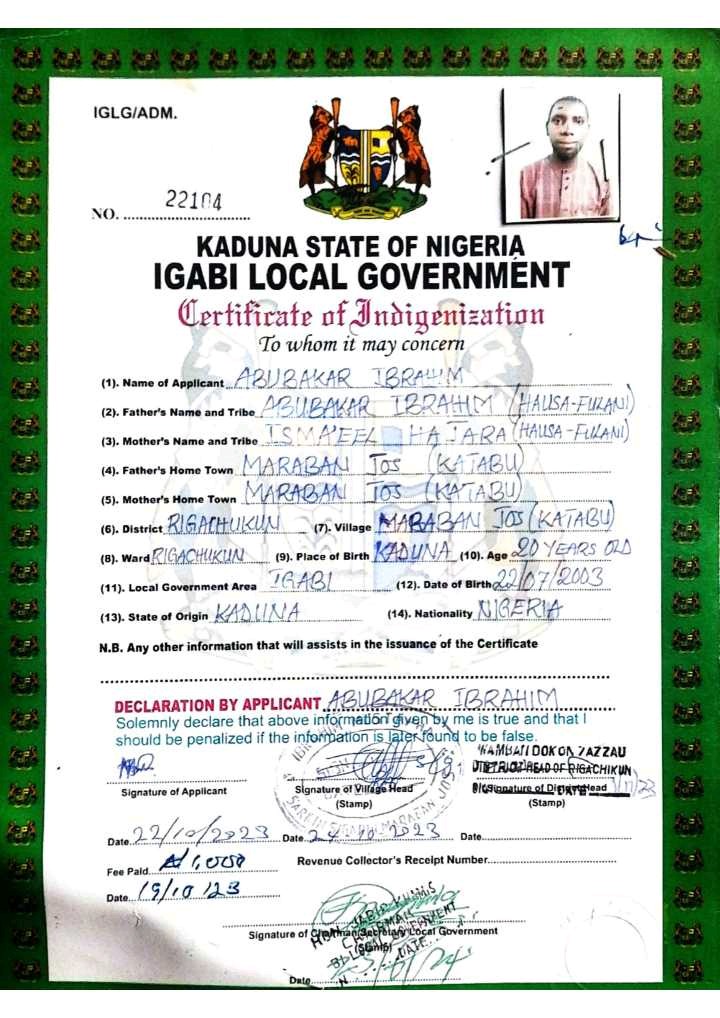 IGLG/ADM.
NO. 22104
KADUNA STATE OF NIGERIA
IGABI LOCAL GOVERNMENT
Certificate of Indigenization
To whom it may concern
(1). Name of Applicant ABUBAKAR IBRAHIM
(2). Father's Name and Tribe ABUBAKAR IBRAHIM (HAUSA-FULANI)
(3). Mother's Name and Tribe ISMA'EEL HAJARA (HAUSA-FULANI)
(4). Father's Home Town MARABAN JOS (KATABU)
(5). Mother's Home Town MARABAN JOS (KATABU)
(6). District RIGACHUKUN (7). Village MARABAN JOS (KATABU)
(8). Ward RIGACHUKUN (9). Place of Birth KADUNA (10). Age 20 YEARS OLD
(11). Local Government Area IGABI (12). Date of Birth 22/07/2003
(13). State of Origin KADUNA (14). Nationality NIGERIA
N.B. Any other information that will assists in the issuance of the Certificate
DECLARATION BY APPLICANT ABUBAKAR IBRAHIM
Solemnly declare that above information given by me is true and that I
should be penalized if the information is later found to be false.
WAMBAN DOKON ZAZZAU
DISTRICT HEAD OF RIGACHIKUN
Signature of Applicant Signature of Village Head Signature of District Head
(Stamp) (Stamp)
Date 22/10/2023 Date 24 10 2023 Date
Fee Paid ₦1,000 Revenue Collector's Receipt Number
Date 19/10/23
Signature of Chairman/Secretary Local Government
(Stamp)
Date